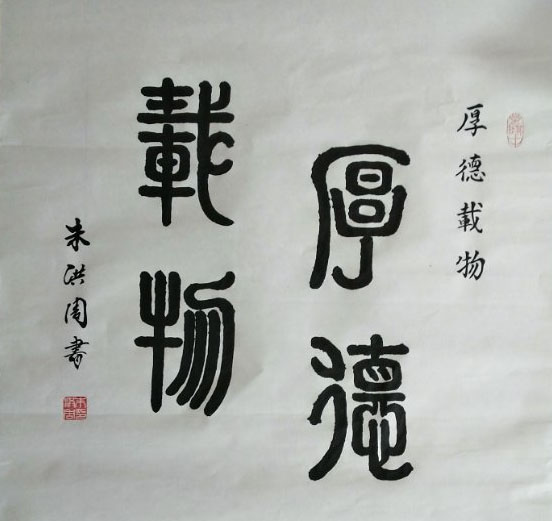 厚德載物
厚德
載物
朱洪周書